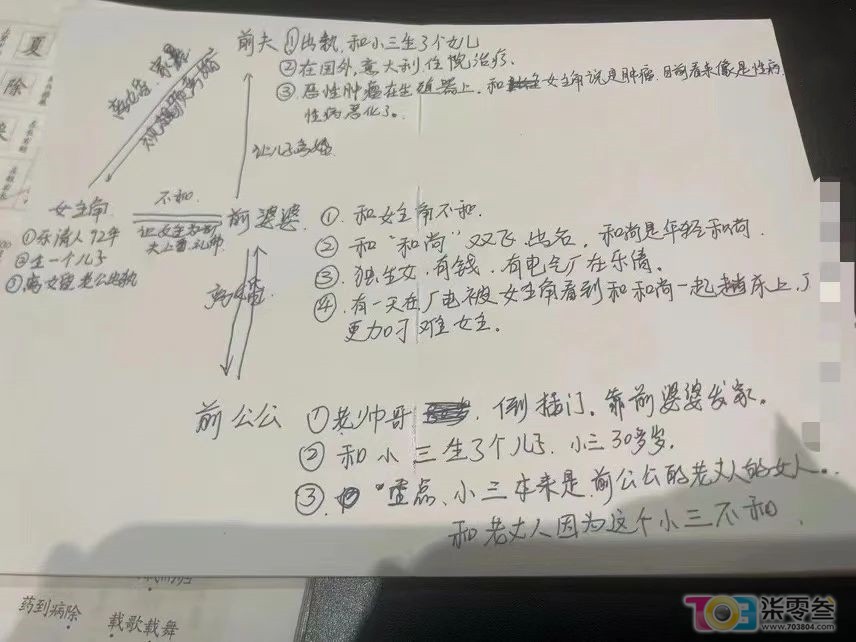 夏
除
前夫 ①出轨,和小三生了个女儿
②在国外,意大利住院治疗.
③恶性肿瘤在生殖器上,和女主角说是肿瘤,目前看来像是性病,
性病恶化了。
让儿子离婚
女主角
不和
前婆婆
①乐清人 92年
②生一个儿子
③离女强老公出轨
离婚
① 和女主角不和.
② 和“和尚”双飞出名,和尚是年轻和尚
③ 独生女,有钱,有电气厂在乐清.
④ 有一天在厂电被女主角看到和和尚一起趟床上,了
更加刁难女主.
前公公
①老帅哥,倒插门,靠前婆婆发家。
② 和小三生了个儿子,小三30多岁.
③重点、小三本来是前公公的老丈人的女人..
和老丈人因为这个小三不和.
药到病除
载歌载舞
703 柒零叁
www.703804.com